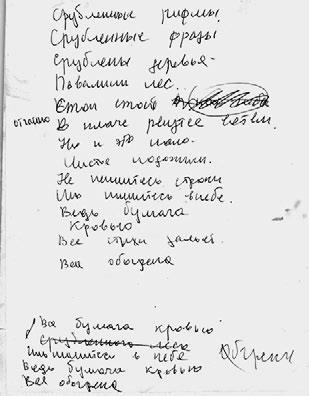 Срубленные рифмы.
Срубленные фразы
Срублены деревья.
Повалили лес.
Стон стоит
отчаяно В плаче рвутся ветви.
Но и это мало.
Листья подожгли.
Не пишитесь строки
Иль пишитесь в небе.
Ведь бумага
Кровью
Все стихи зальет.
Вся обагрена
Вся бумага кровью
Срубленного леса
Иль пишитесь в небе
Ведь бумага кровью
Вся обагрена